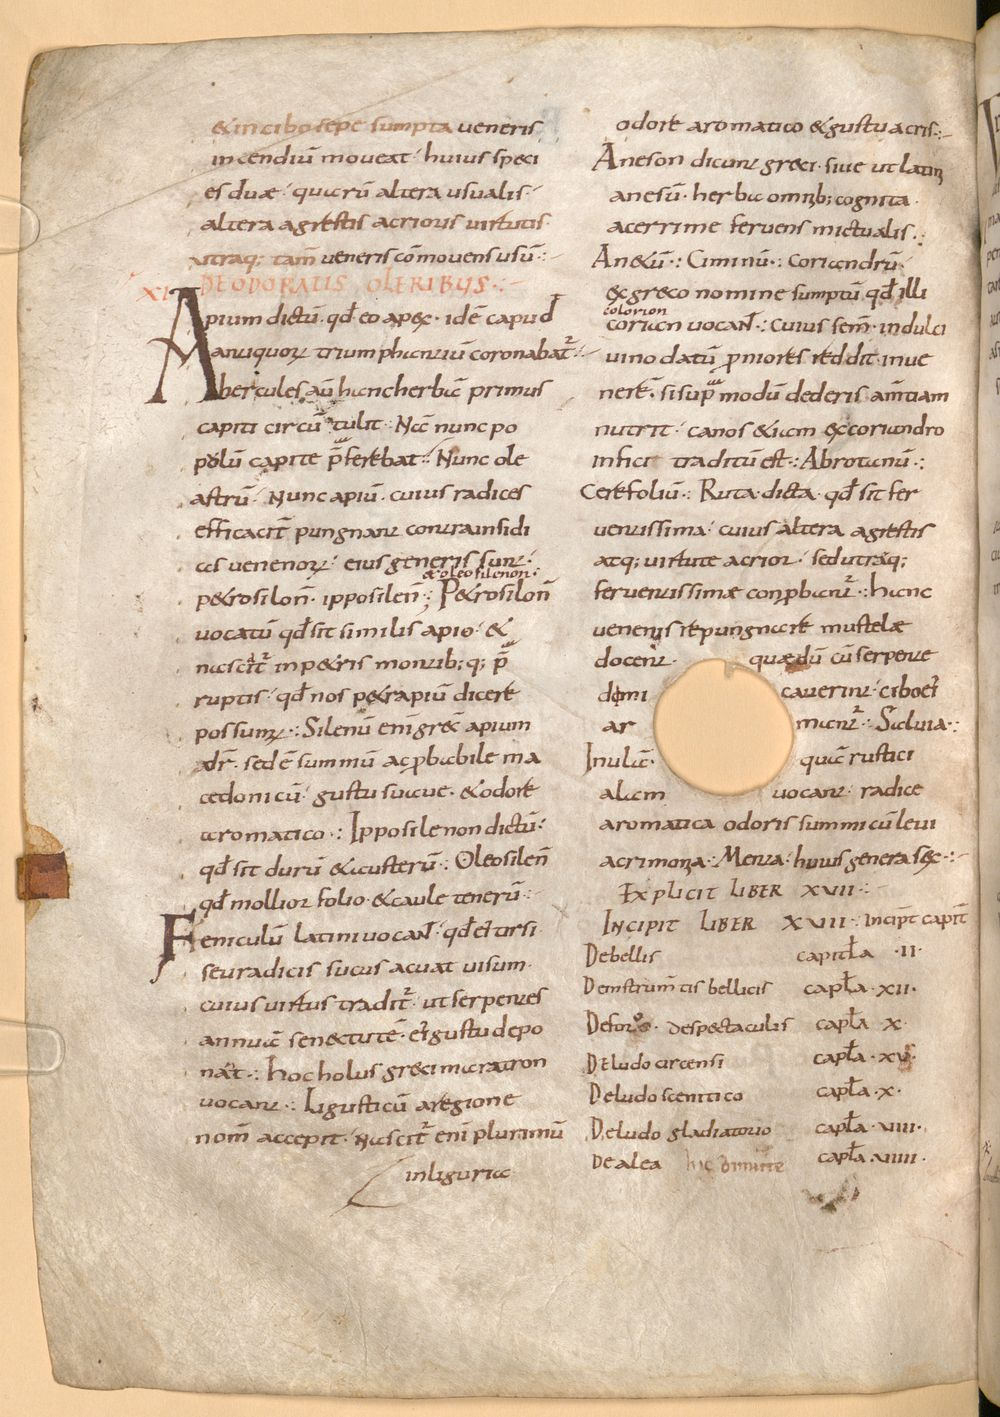 &incibo sepe sumpta veneris
incendiū moveat · huius speci
es duæ · quarū altera usualis ·
altera agrestis acrioris virtutis
utraq; tam̄ veneris cōmovens usū ·:
XI DEODORATIS OLERIBUS ·:
Apium dictū · qđ eo apex · idē capud
antiquoꝝ triumphantiū coronabat᷑ ·:
hercules aū hanc herbā primus
capiti circū tulit · Nā nunc po
polū capite p̄ferebat ·: Nunc ole
astrū · Nunc apiū · cuius radices
efficacit̄ pungnant contra insidi
as venenoꝝ · eius generis sunt ·
& oleosilenon ·
p&rosilon̄ · ipposilen̄ ·; P&rosilon̄
vocatū qđ sit similis apio · &
nascit᷑ in p&ris montib; q; p̄
ruptis · qđ nos p&rapiū dicere
possumꝰ ·: Silenū enī grec̄ apium
dr̄ · sed ē summū ac ꝓbabile ma
cedonicū · gustu suave · & odore
aromatico ·: Ipposilenon dictū ·
qđ sit durū & austerū ·: Oleosilen̄
qđ mollior folio · & caule tenerū ·:
Feniculū latini vocan̄t · qđ ei tirsi
seu radicis sucus acuat visum ·
cuius virtus tradit᷑ · ut serpentes
annuā senectutē · ei᷒ gustu depo
nānt ·: hoc holus greci maratron
vocant ·: Ligusticū a regione
nom̄ accepit · Nascit᷑ enī plurimū
in liguria
odore aromatico & gustu acris ·:
Aneson dicunt greci · sive ut latini
anesū · herba omnib; cognita ·
acerrime fervens mictualis ·:
An&ū ·: Ciminū ·: coriandrū
ex greco nomine sumptū qđ illi
colorion
corian vocan̄t ·: Cuius sem̄ · in dulci
vino datū ꝓniores reddit in ve
nerē · si sup̄ modū dederis am̄tiam
nutrit · canos & iam ex coriandro
infici traditū est ·: Abrotanū ·:
Cerefoliū ·: Ruta dicta · qđ sit fer
ventissima · cuius altera agrestis
atq; virtute acrior · sed utraq;
ferventissimæ conꝓbant᷑ ·: hanc
venenis repungnare mustelæ
docent · quæ dū cū serpente
dimi caverint · cibo ei᷒
ar mant᷑ ·: Salvia ·:
Inulā · quā rustici
alam vocant · radice
aromatica odoris summi cū levi
acrimonia · Menta · huius genera sex ·:
EXPLICIT LIBER XVII ·
INCIPIT LIBER XVIII · Incip̄t capit̄
De bellis capitl̄a · II ·
De instrum̄tis bellicis capl̄a · XII ·
De foris · de spectaculis capl̄a X ·
De ludo circensi capl̄a · XV
De ludo scenitico capl̄a · X ·
De ludo gladiatorio capl̄a · VIII ·
De alea hic dimitte capl̄a · VIIII ·